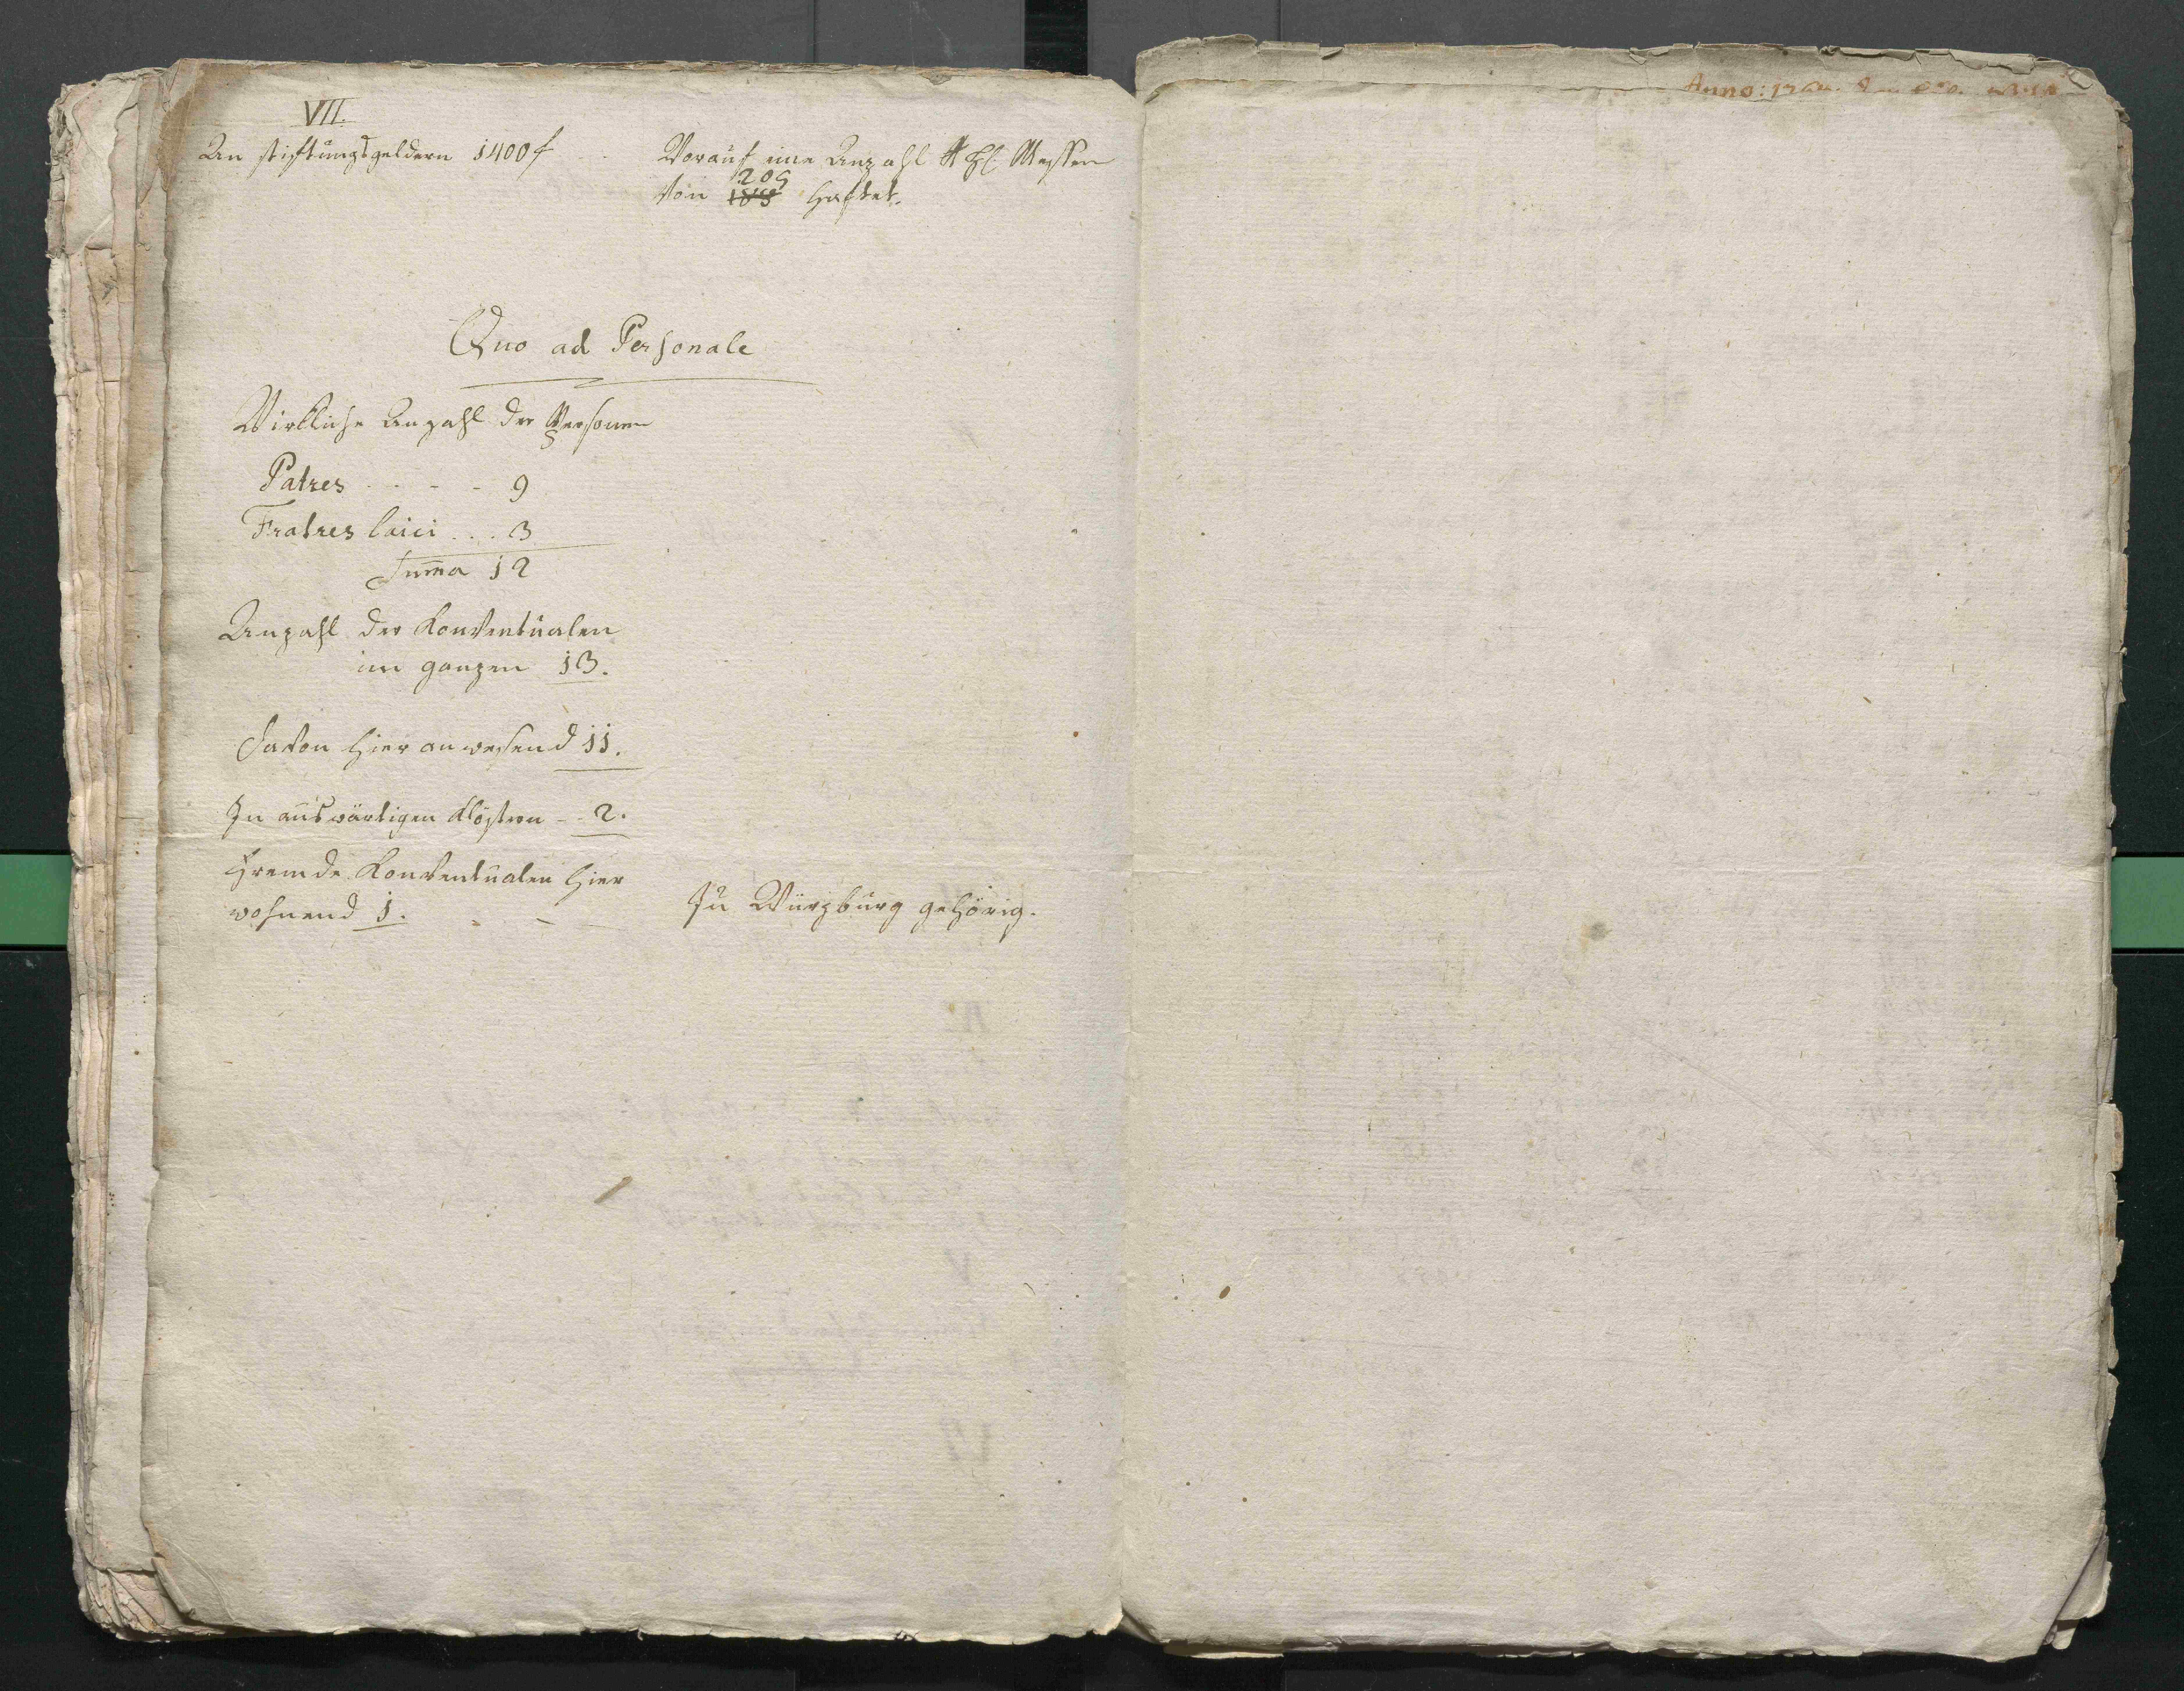 VII.
An stiftungsgeldern 1400 f
Worauf eine Anzahl hl. Messen
von 205 haftet.
Quo ad Personale
Wirkliche Anzahl der Personen
Patres - - - - 9
Fratres laici . . . 3
Suma 12
Anzahl der Konventualen
im ganzen 13.
Davon hier anwesend 11.
In auswärtigen Klöstern - - 2.
Fremde Konventualen hier
wohnend 1. - -
Zu Würzburg gehörig.
Anno: